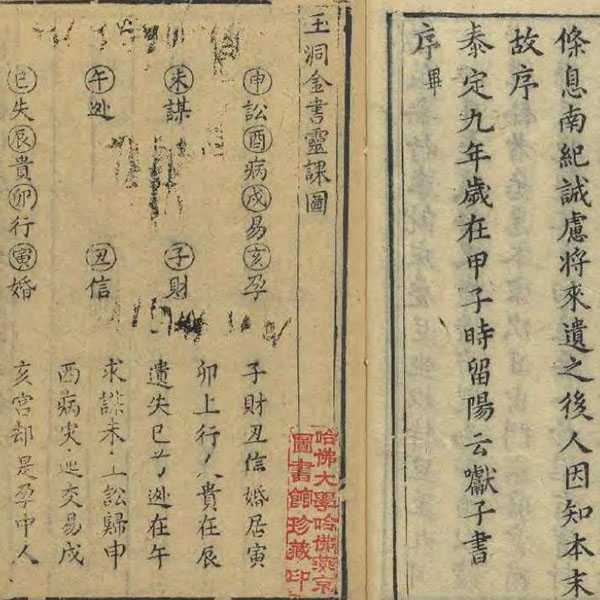 條息南紀誠慮將來遺之後人因知本末
故序
泰定九年歲在甲子時留陽云獻子書
序畢
玉洞金書靈課圖
申訟酉病戌易亥孕
未謀 子財
午逃 丑信
巳失辰貴卯行寅婚
子財丑信婚居寅
卯上行人貴在辰
遺失巳 逃在午
求謀未 訟歸申
酉病 交易戌
亥宮却是孕中人
哈佛大學哈佛燕京
圖書館珍藏印